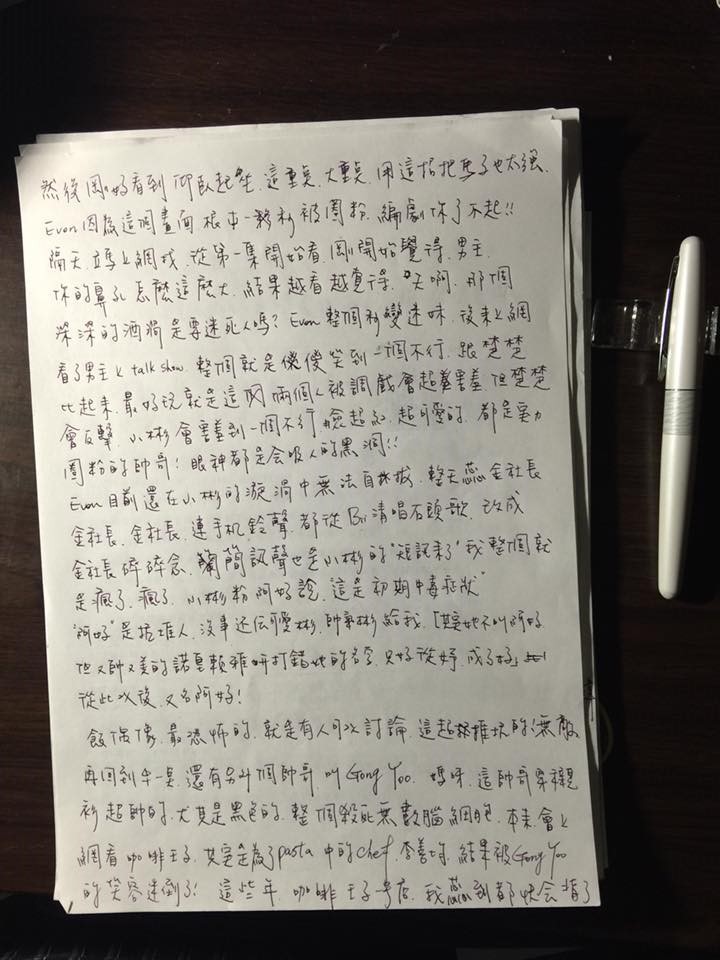 然後剛好看到 仰臥起坐,這重點,大重點,用這招把馬子也太強.
Evon因為這個畫面根本一秒被圈粉,編劇你了不起!!
隔天立馬上網找,從第一集開始看,剛開始覺得,男主
你的鼻孔怎麼這麼大,結果越看越覺得,天啊,那個
深深的酒渦是要迷死人嗎? Evon整個秒變迷妹,後來上網
看了男主上 talk show,整個就是傻傻笑到一個不行,跟楚楚
比起來,最好玩就是這兩個人被調戲會超羞害羞 但楚楚
會反擊,小彬會害羞到一個不行 臉超紅,超可愛的,都是實力
圈粉的帥哥! 眼神都是会吸人的黑洞!!
Evon目前還在小彬的漩渦中無法自拔,整天蕊蕊金社長
金社長,金社長,連手机鈴聲,都從 清唱石頭歌,改成
金社長碎碎念,簡訊聲也是小彬的"短訊來了"我整個就
是瘋了,瘋了,小彬粉阿好說,這是初期中毒症狀"
"阿好"是拉坑人,沒事还伝可愛彬,帥氣彬給我,[其实她不叫阿好
但又帥又美的諾基賴雅妍打錯她的名字,只好從妤,成了好」
從此以後,又名阿好!
飯偶像,最恐怖的,就是有人可以討論,這超級推坑的!無敵
再回到牛一隻,還有另外個帥哥,叫Gong Yoo. 媽呀,這帥哥穿襯
衫超帥的,尤其是黑色的,整個殺死無數腦細胞,本來會上
網看咖啡王子,其实是為了pasta 中的chef,李善均,結果被Gong Yoo
的笑容迷倒了! 這些年,咖啡王子1号店,我 到都快会背了